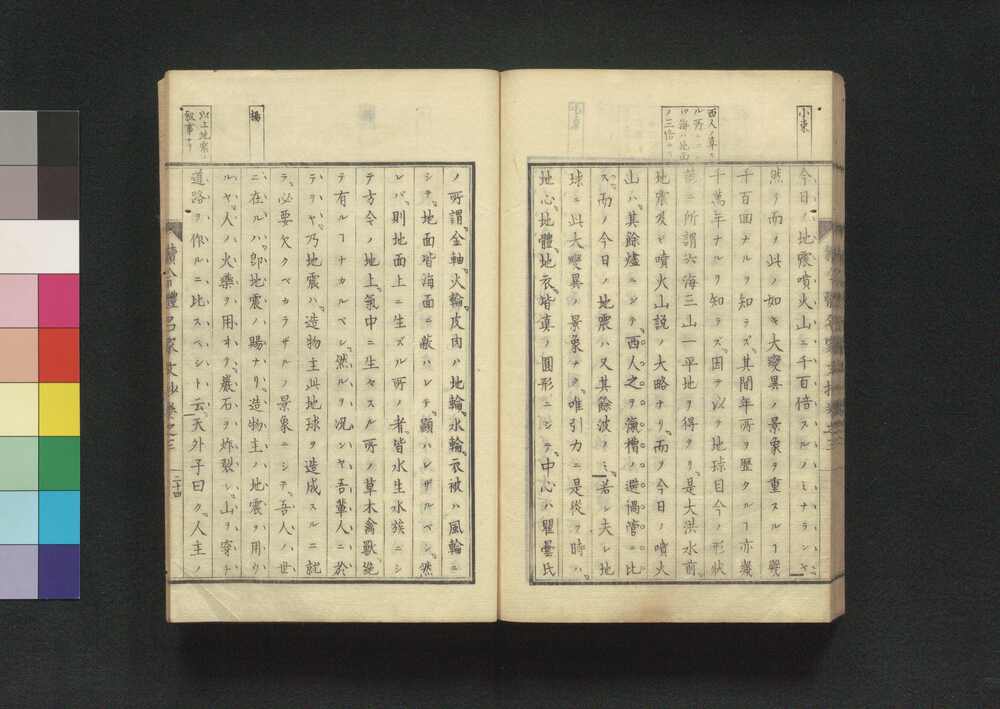 小束
今日ノ地震噴火山ニ千百倍スルノミナランヤ
然リ而ノ此ノ如キ大變異ノ景象ヲ重スルヿ幾
千百回ナルヲ知ラズ其間年所ヲ歴タルヿ亦幾
千萬年ナルヲ知ラズ因テ以テ地球目今ノ形狀
即ニ所謂六海三山一平地ヲ得タリ是大洪水前
地震及ヒ噴火山説ノ大略ナリ而ノ今日ノ噴火
山ハ其餘燼ニシテ西人之ヲ滊槽ノ避過管ニ比
ス而ノ今日ノ地震ハ又其餘波ノミ若シ夫レ地
球ニ此大變異ノ景象ナク唯引力ニ是從フ時ハ
地心地體地衣皆真ノ圓形ニシテ中心ハ瞿曇氏
ノ所謂金軸火輪皮肉ハ地輪水輪衣被ハ風輪ニ
シテ地面皆海面ニ蔽ハレテ顯ハレザルベシ然
レバ則地面上ニ生ズル所ノ者皆水生水族ニシ
テ方今ノ地上氣中ニ生ヤスル所ノ草木禽獸絶
テ有ルヿナカルベシ然ルヲ况ンヤ吾輩人ニ於
テヲヤ乃地震ハ造物主此地球ヲ造成スルニ就
テ必要欠クベカラザルノ景象ニシテ吾人ノ世
ニ在ルハ即地震ノ賜ナリ造物主ノ地震ヲ用ウ
ルヤ人ノ火藥ヲ用ヰテ巖石ヲ炸裂シ山ヲ穿チ
道路ヲ作ルニ比スベシト云天外子曰ク人主ノ
揚
二十四